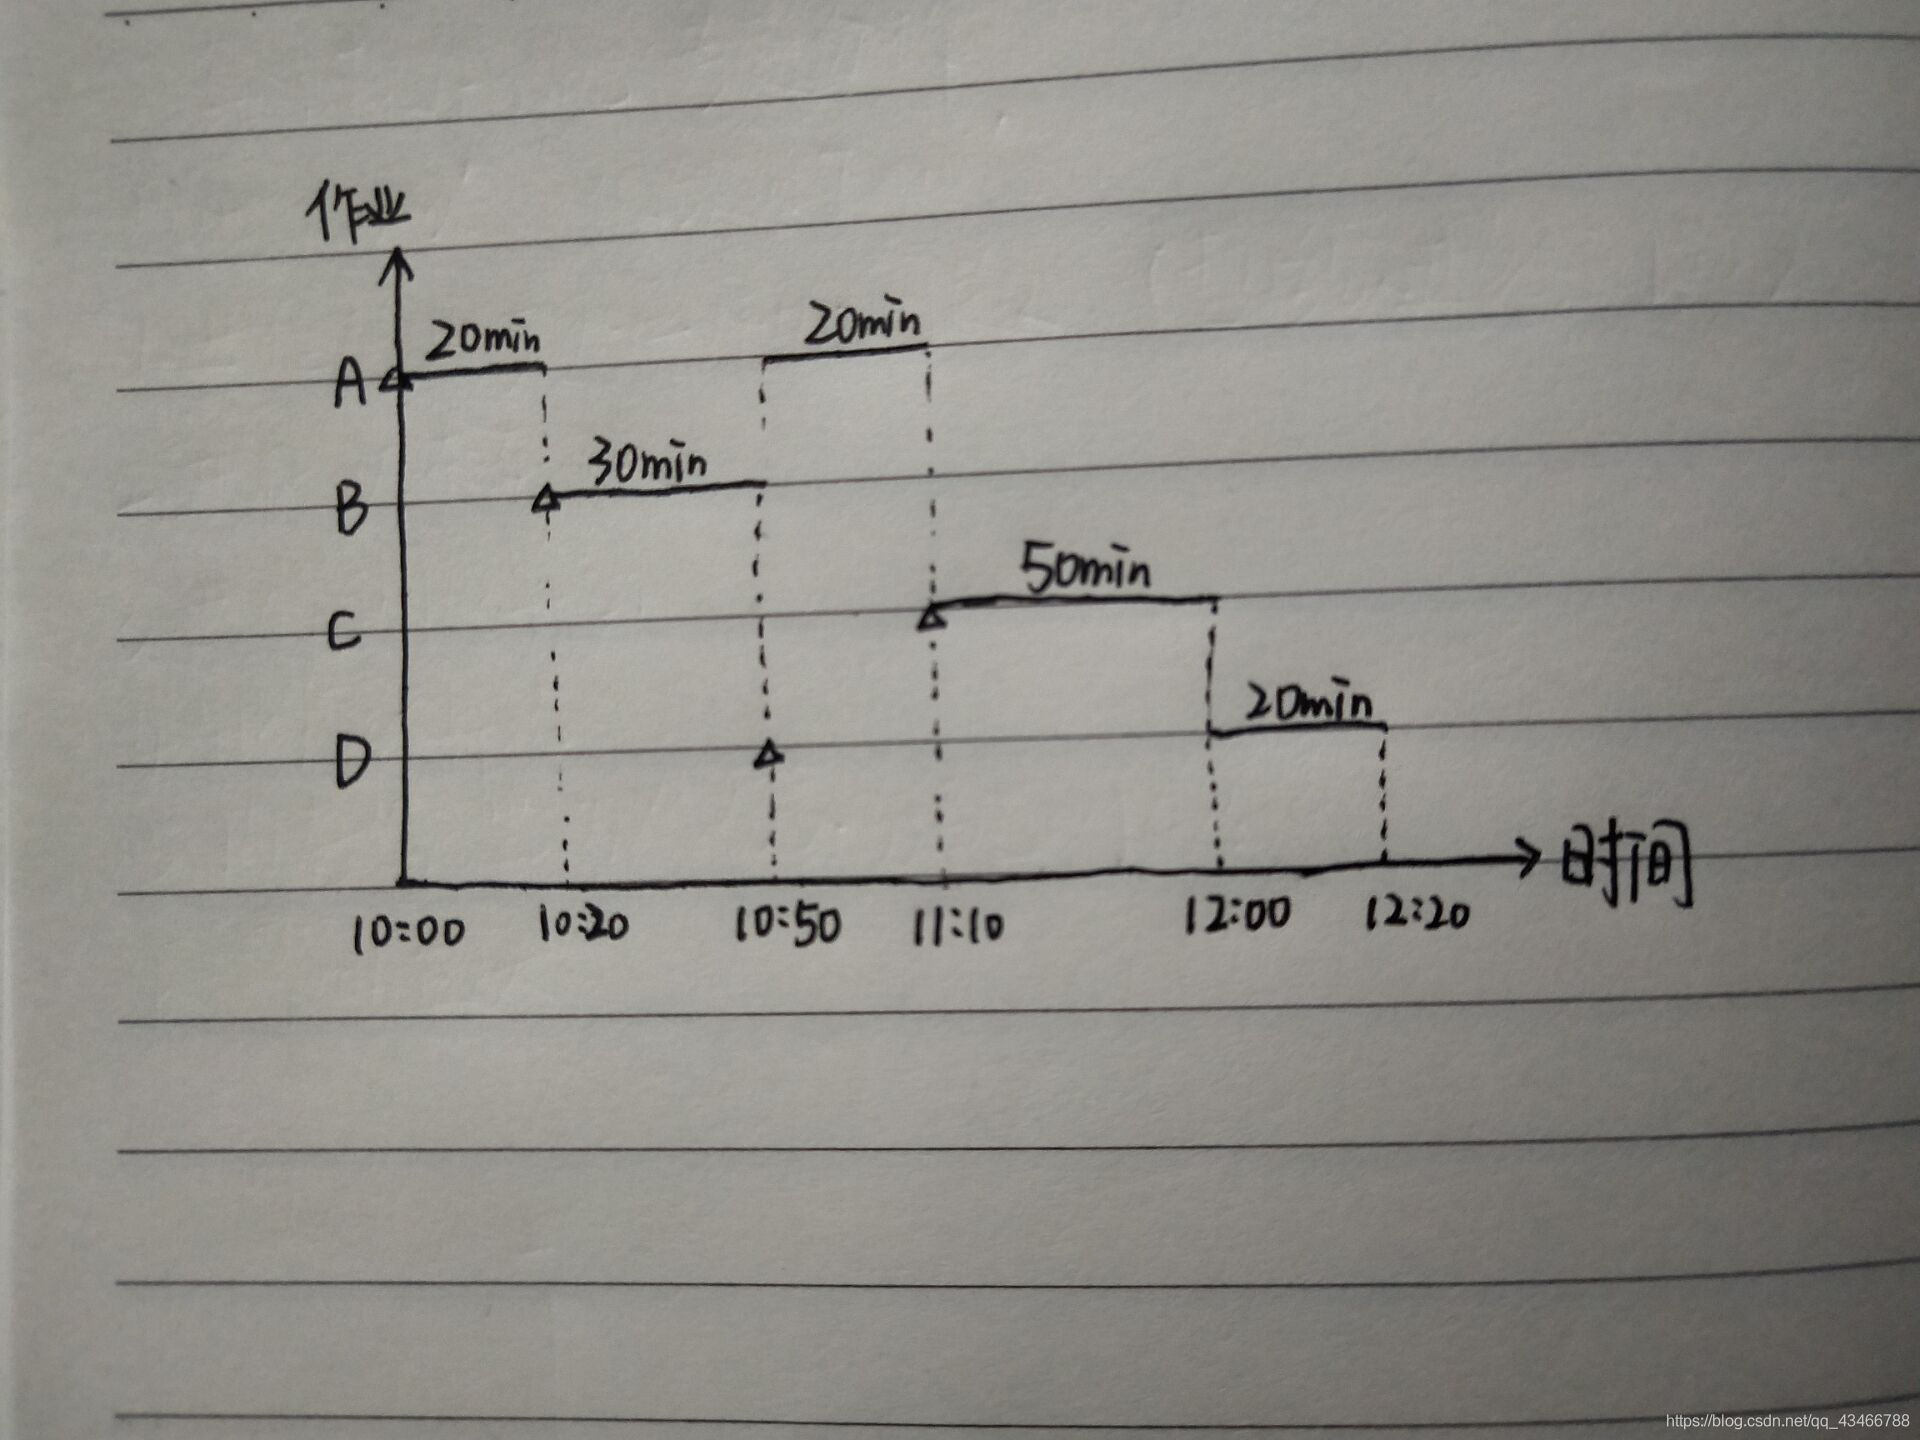 作业
20min 20min
A
30min
B
50min
C
20min
D
时间
10:00 10:20 10:50 11:10 12:00 12:20
https://blog.csdn.net/qq_43466788